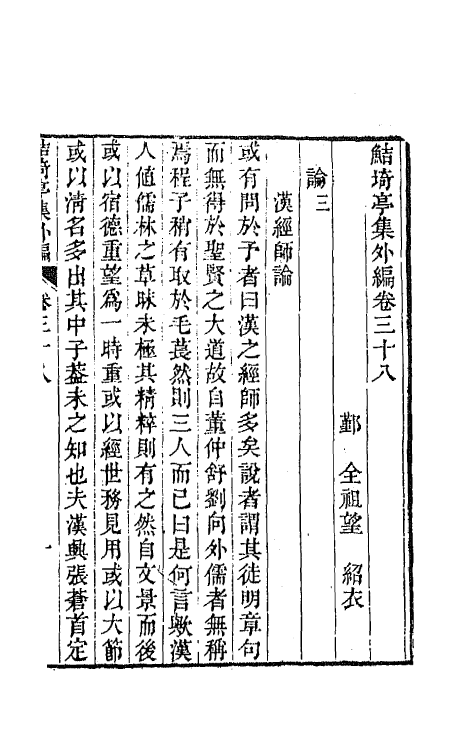 鮚埼亭集外編卷三十八
鄞 全祖望 紹衣
論三
漢經師論
或有問於予者曰漢之經師多矣說者謂其徒明章句
而無得於聖賢之大道故自董仲舒劉向外儒者無稱
焉程子稍有取於毛萇然則三人而已曰是何言歟漢
人値儒林之草昧未極其精粹則有之然自文景而後
或以宿德重望爲一時重或以經世務見用或以大節
或以淸名多出其中子葢未之知也夫漢興張蒼首定
鮚埼亭集外編 卷三十八 一